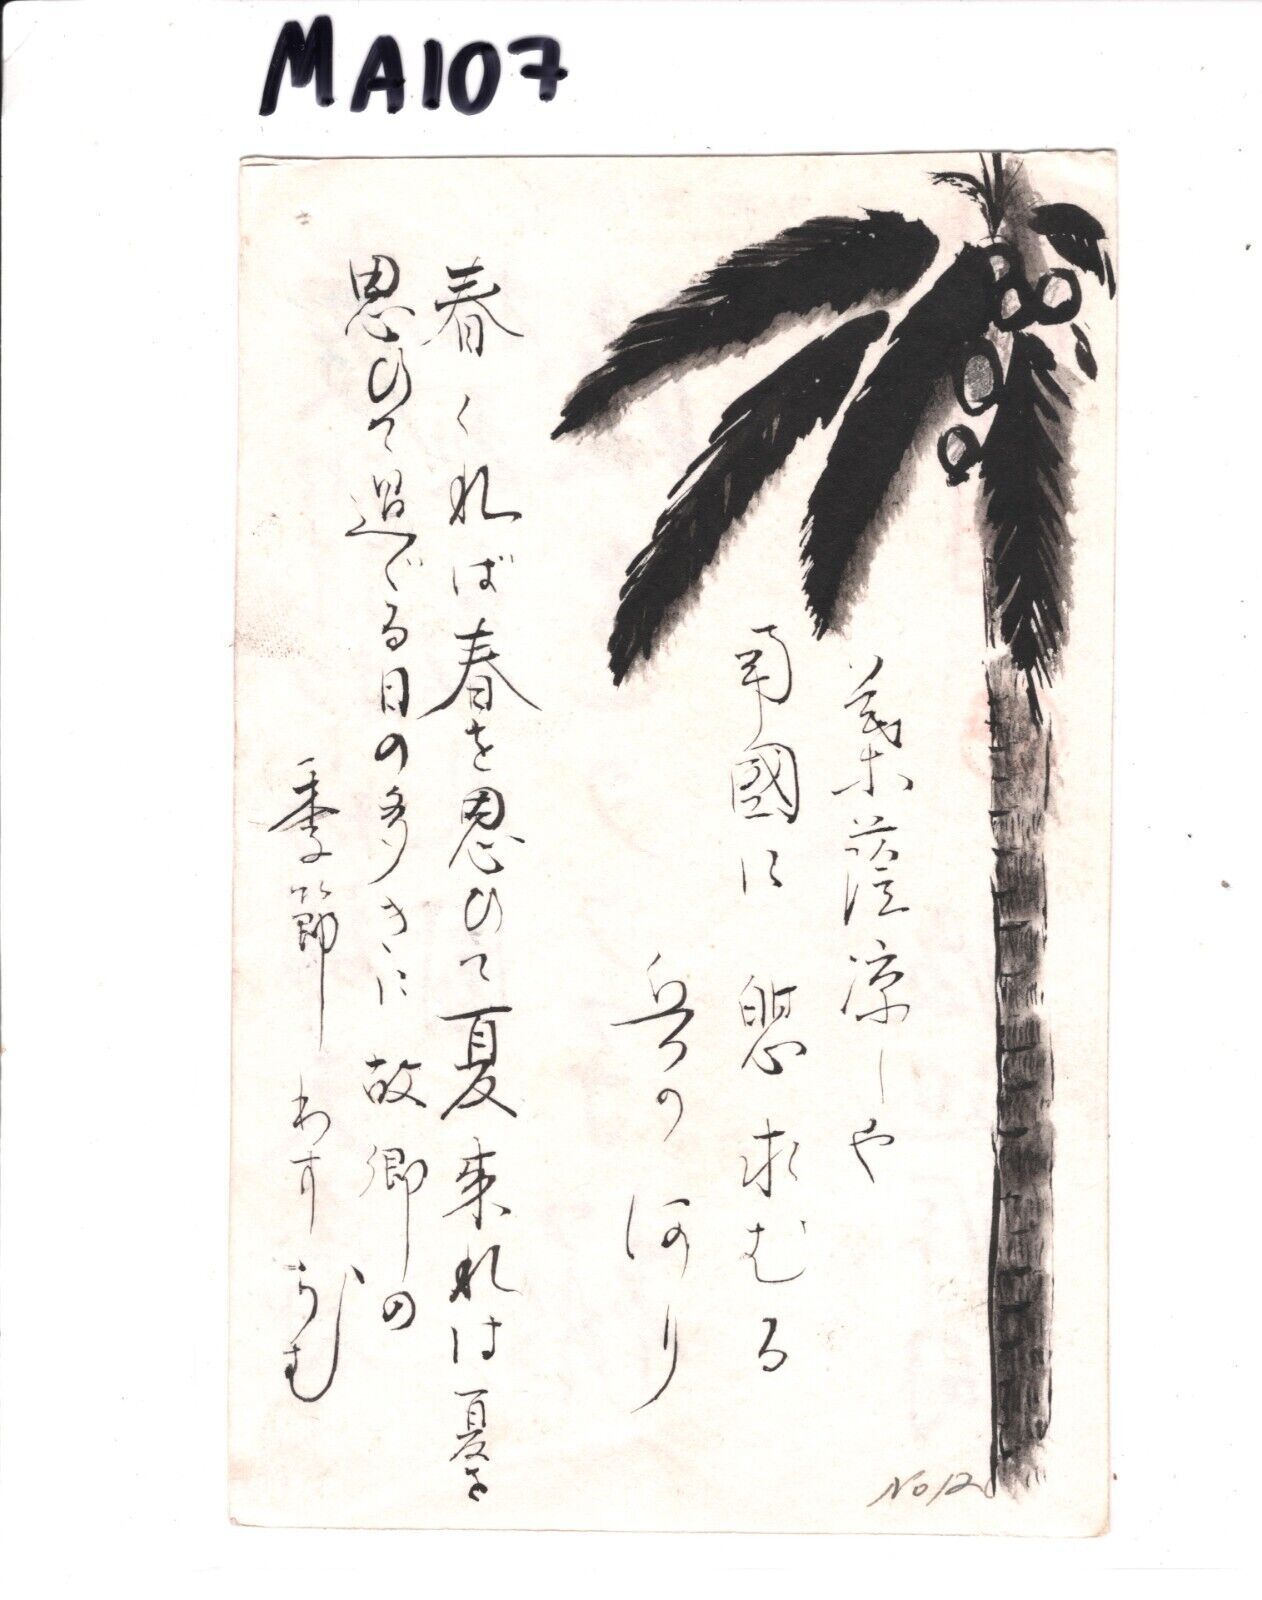 MA107
葉蔭涼しや
南國に憩求むる
兵のほり
春くれば春を思ひて夏来れば夏を
思ひて過ぐる日の多きに故郷の
季節わすらむ
No12